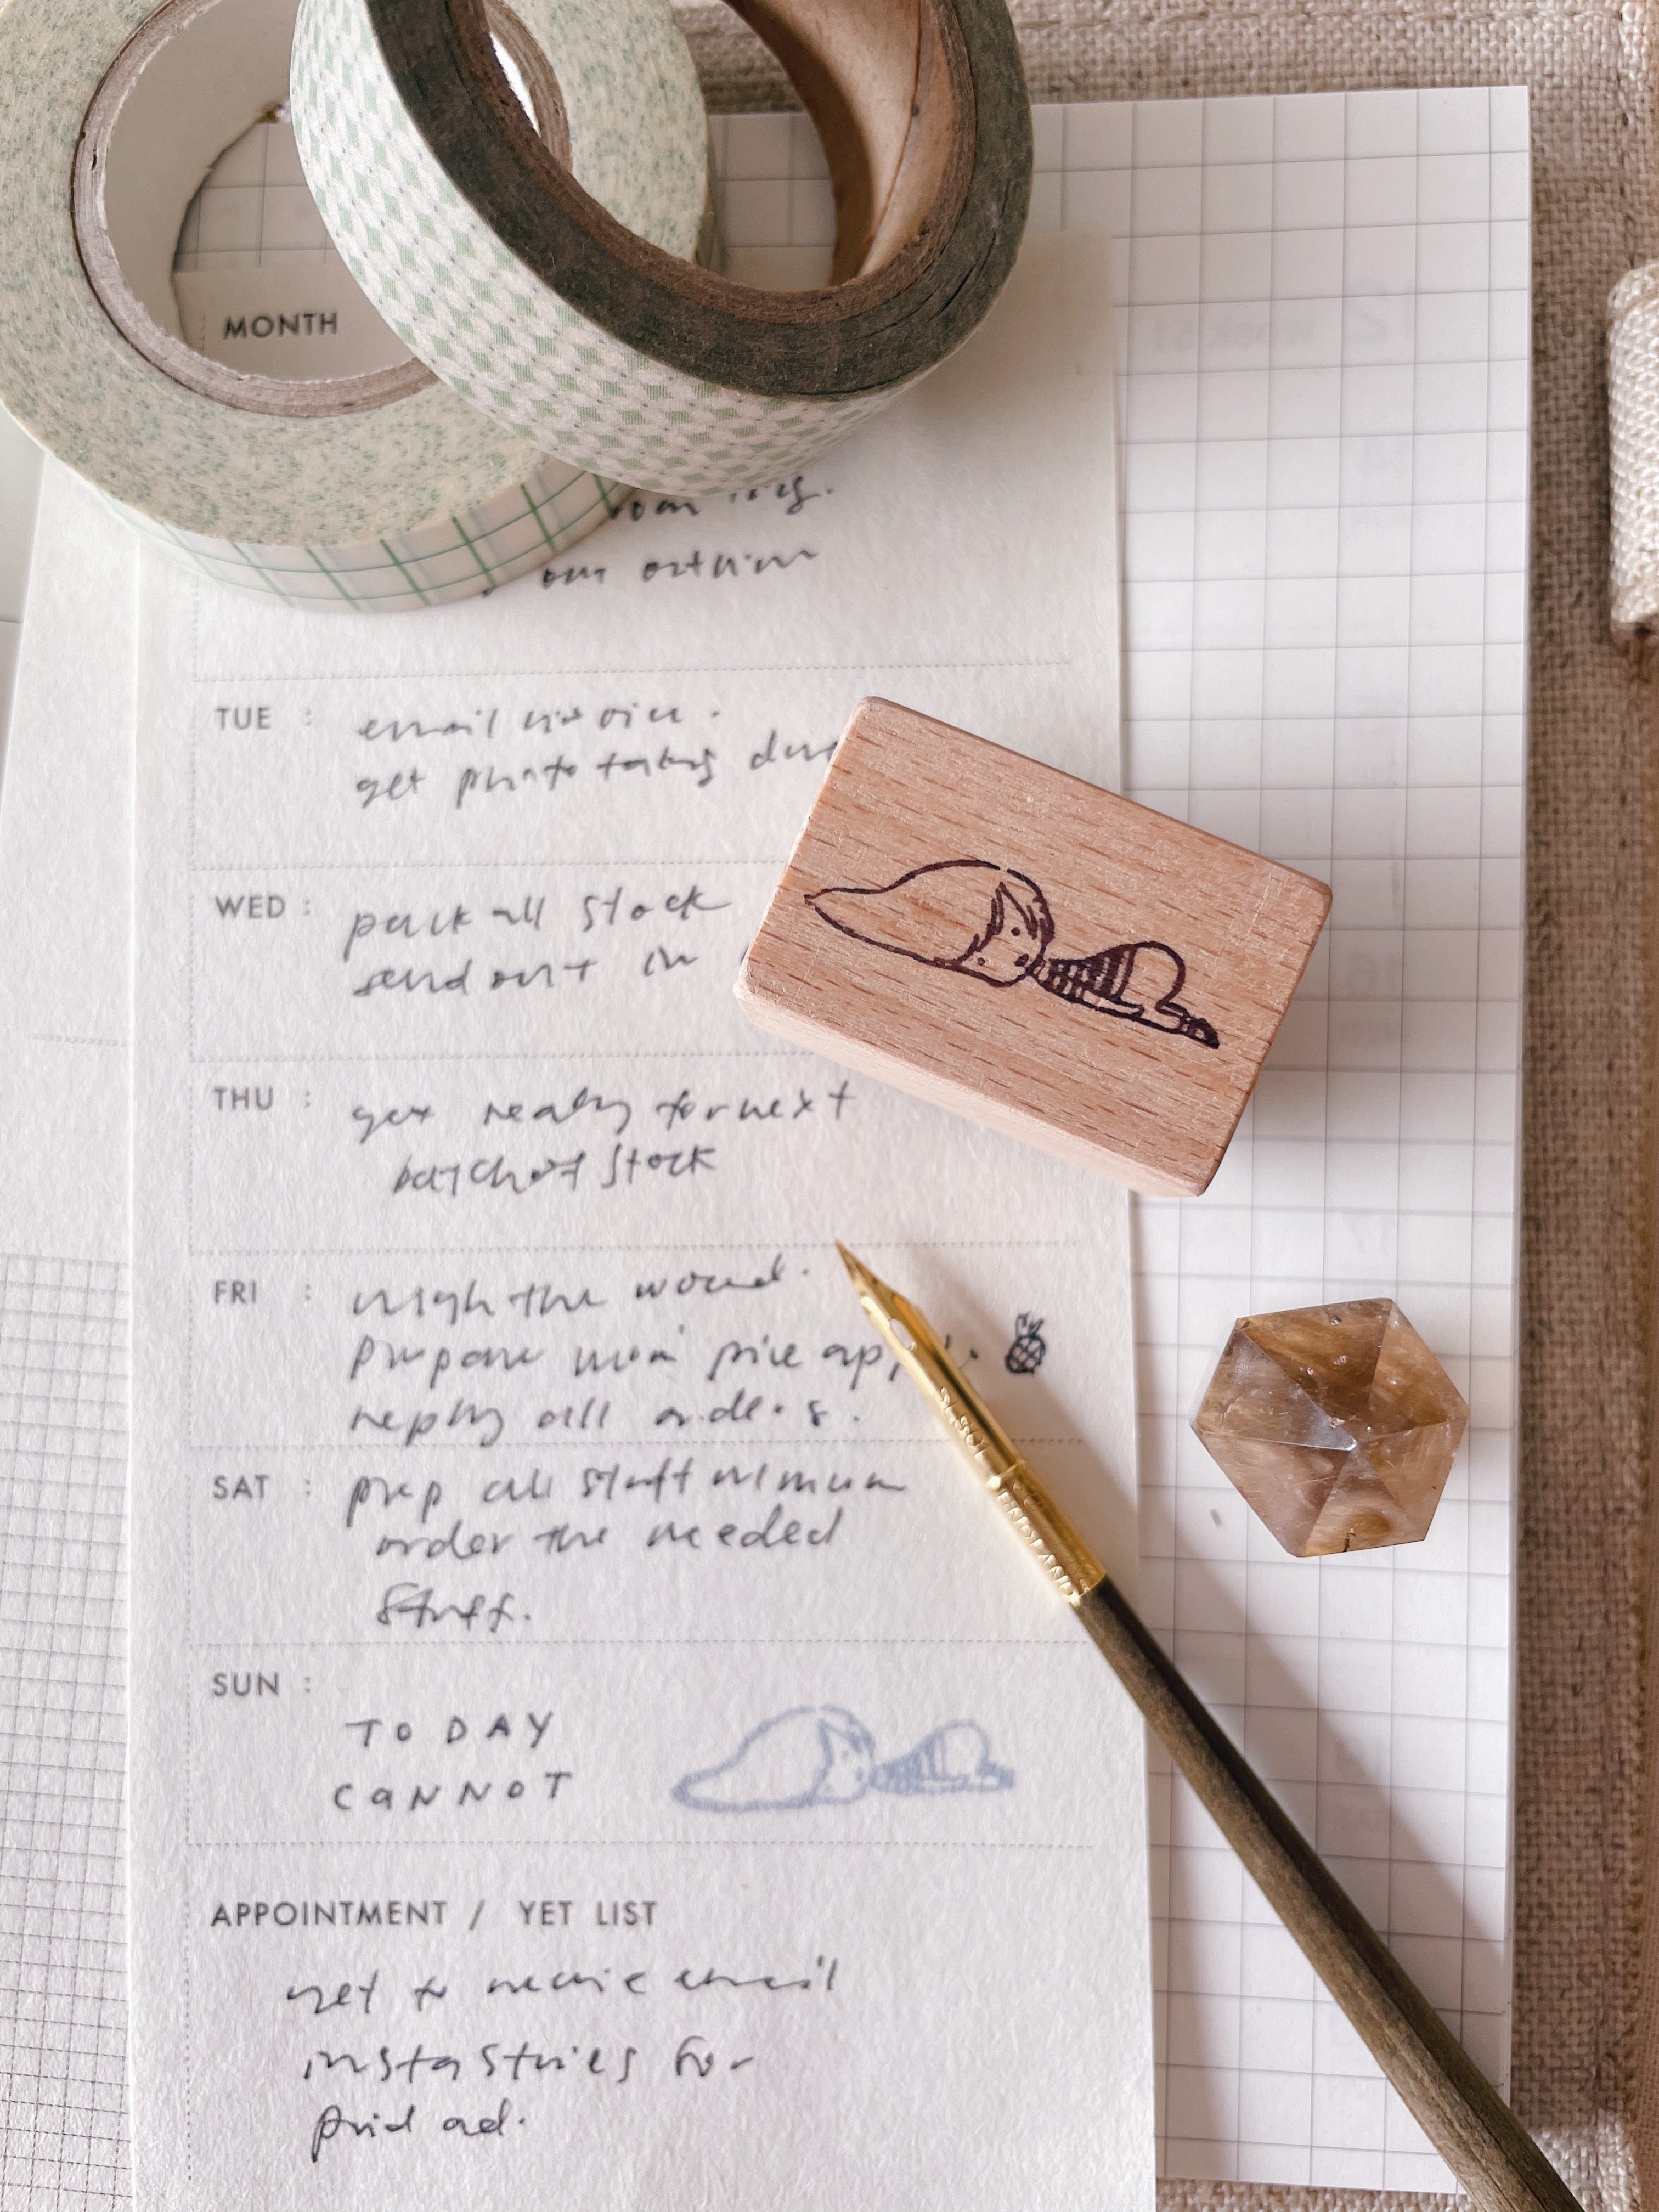 MONTH
TUE : email invoice.
get photo taking
WED : pack all stock
send out in
THU : get ready for next
batch of stock
FRI : weigh the wound.
prepare mini pine app
reply all orders.
SAT : prep all stuff
order the needed
stuff.
SUN :
TODAY
CaNNOT
APPOINTMENT / YET LIST
yet to receive email
insta stories for
paid ad.
ENGLAND